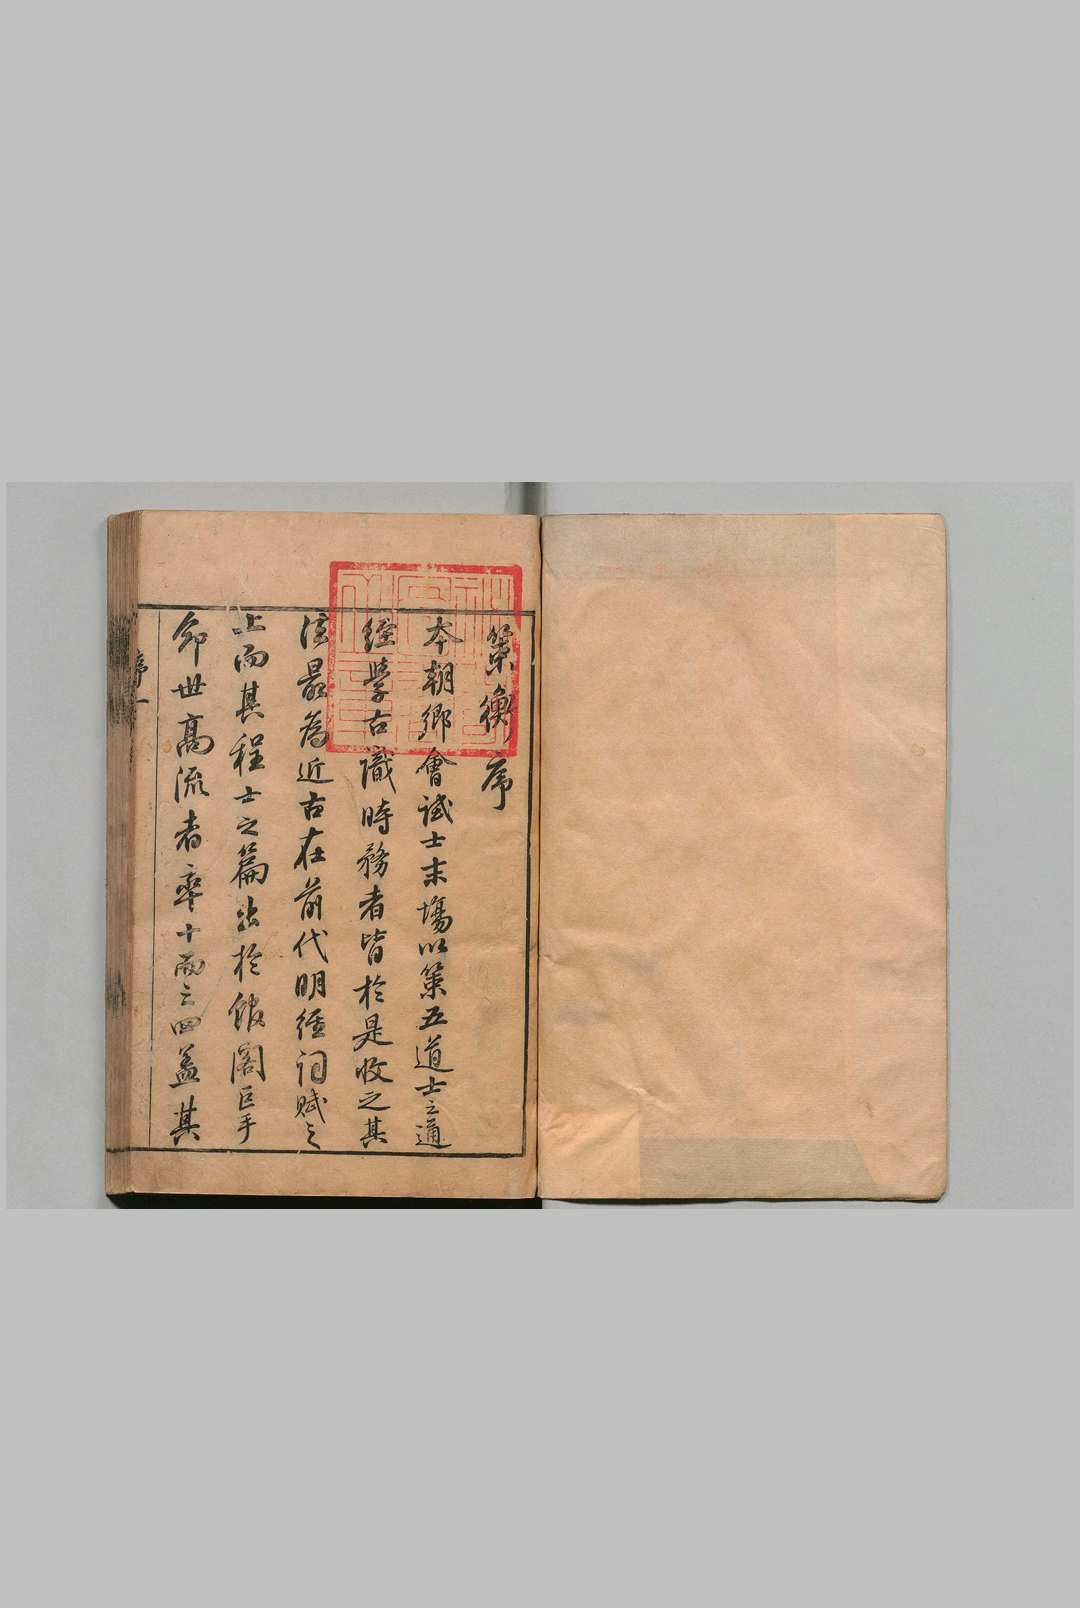 策衡序
本朝鄉會試士末場以策五道士之通
經學古識時務者皆於是收之其
法最為近古在前代明經詞賦之
上而其程士之篇出於館閣巨手
命世高流者率十而三四蓋其
序一